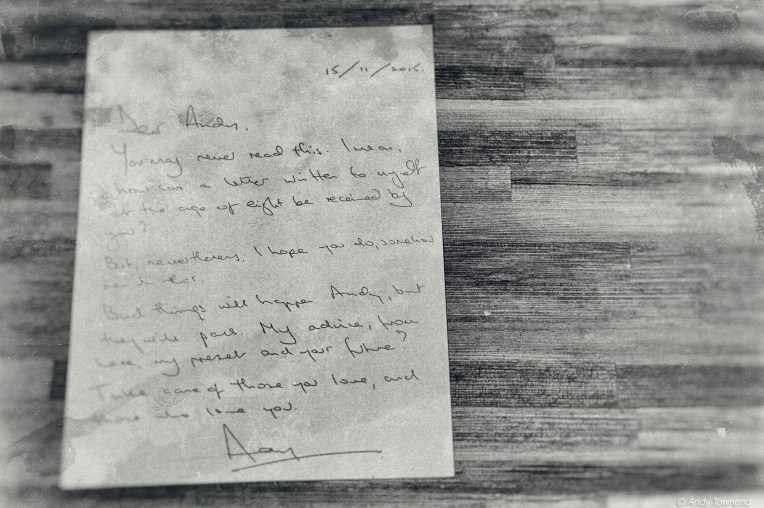 15/11/2015.
Dear Andy,
You may never read this. I mean,
how can a letter written to myself
at the age of eight be received by
you?
But, nevertheless, I hope you do, somehow
Bad things will happen Andy, but
they will pass. My advice, from
here, my present and your future?
Take care of those you love, and
those who love you.
Andy
© Andy Townend